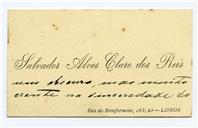 Salvador Alves Claro dos Reis
um obscuro, mas muito
crente na sinceridade do
Rua do Bemformoso, 183, 2.º — LISBOA